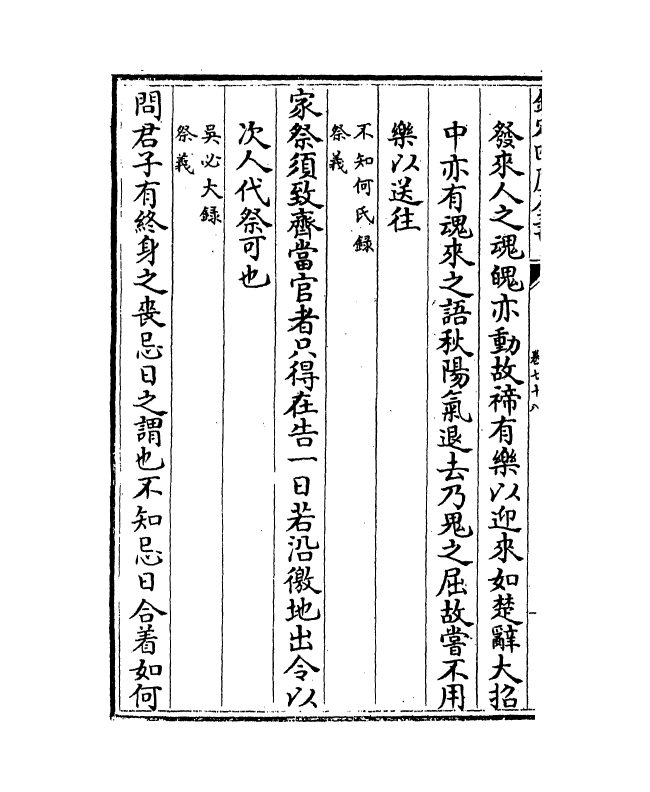 發來人之魂魄亦動故禘有樂以迎來如楚辭大招
中亦有魂來之語秋陽氣退去乃鬼之屈故嘗不用
樂以送往
不知何氏錄
祭義
家祭須致齊當官者只得在告一日若沿徼地出令以
次人代祭可也
吳必大錄
祭義
問君子有終身之喪忌日之謂也不知忌日合着如何